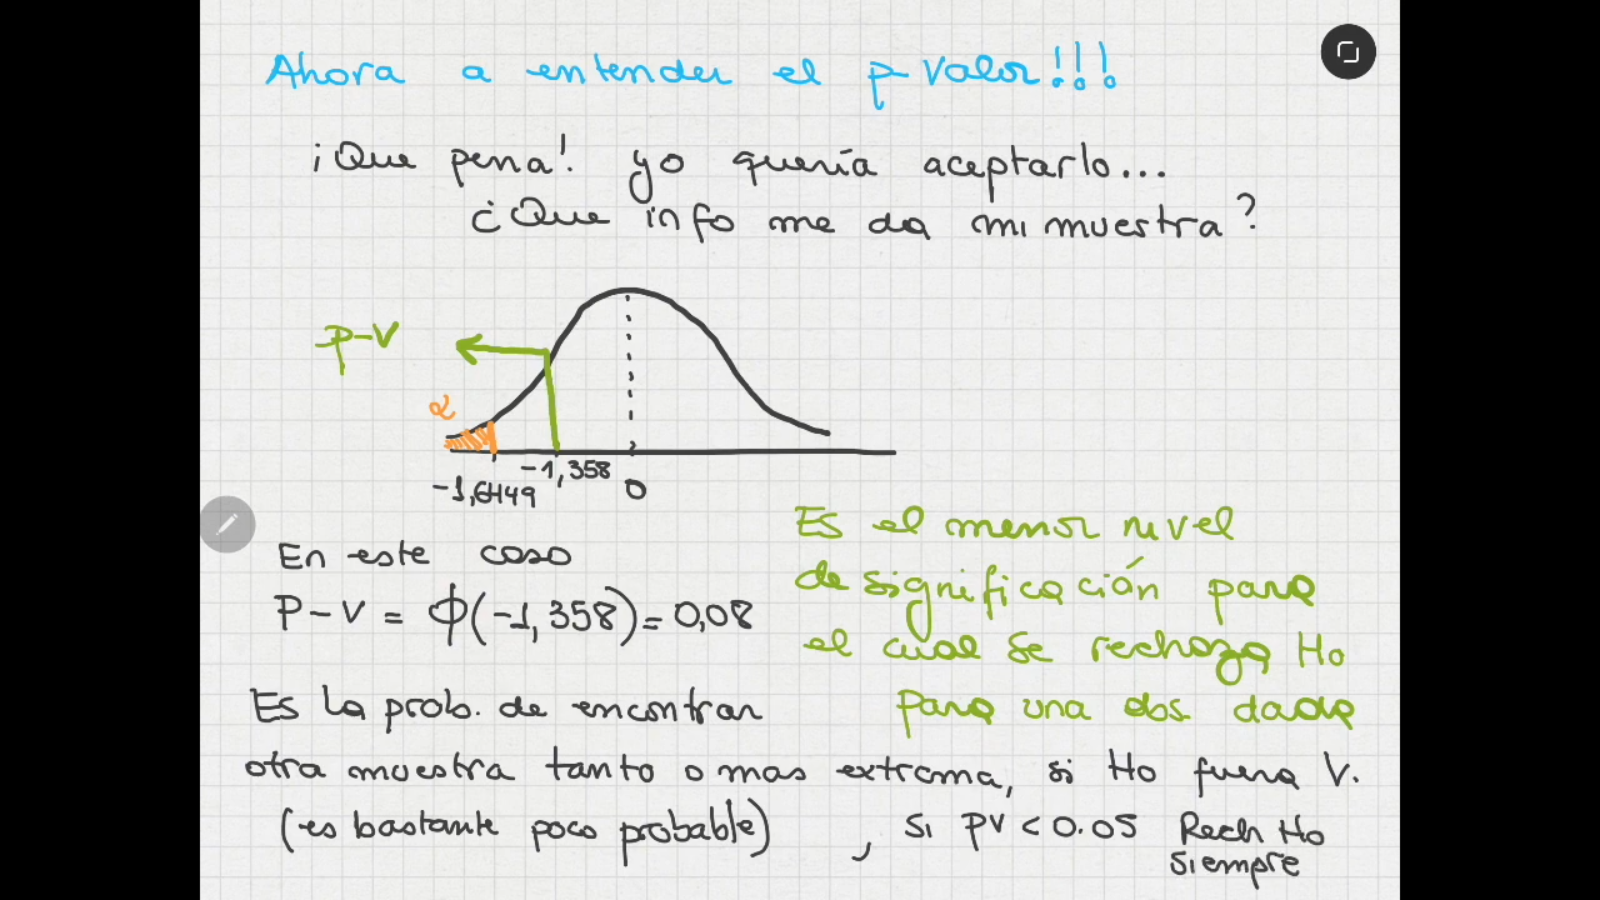 Ahora a entender el p-valor!!!
¡Que pena! yo quería aceptarlo...
¿Que info me da mi muestra?
p-v
α
-1,6449
-1,358
0
En este caso
P-V = ϕ(-1,358) = 0,08
Es el menor nivel
de significación para
el cual se rechaza Ho
para una obs. dada
Es la prob. de encontrar
otra muestra tanto o mas extrema, si Ho fuera V.
(es bastante poco probable), si PV < 0.05 Rech Ho
siempre